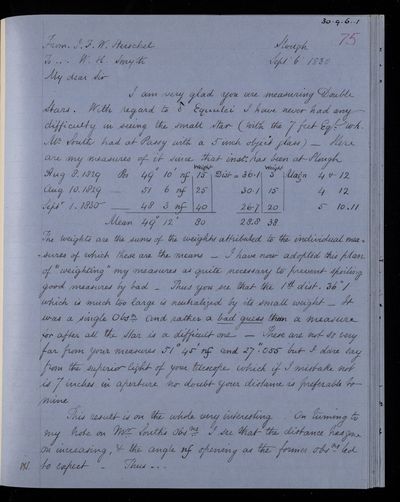 30.9.6.1
75
From J. F. W. Herschel Slough
To ... W. H. Smyth Sept 6 1830
My dear Sir
I am very glad you are measuring Double
Stars. With regard to δ Equulei I have never had any
difficulty in seeing the small star (with the 7 feet Eql. wh.
Mr South had at Passy with a 5 inch object glass) — Here
are my measures of it since that inst. has been at Slough
Weight Weight
Aug 8. 1829 Pos 49° 10' nf 15 Dist = 36.1 3 Magn 4 & 12
Aug 10. 1829 — 51 6 nf 25 30.1 15 4 12
Sept 1. 1830 — 48 3 nf 40 26.7 20 5 10.11
Mean 49° 12' 80 28.8 38
The weights are the sums of the weights attributed to the individual mea-
-sures of which these are the means — I have now adopted this plan
of "weighting" my measures as quite necessary to prevent spoiling
good measures by bad — Thus you see that the 1st dist. 36"1
which is much too large is neutralized by its small weight — It
was a single Obsn and rather a bad guess than a measure
for after all the star is a difficult one — These are not so very
far from your measures 51° 45' nf and 27".055 but I dare say
from the superior light of your telescope (which if I mistake not
is 7 inches in aperture) no doubt your distance is preferable to
mine
This result is on the whole very interesting On turning to
my note on Mr South's Obsns I see that the distance has gone
on increasing, & the angle nf opening as the former obsns led
to expect — Thus ...